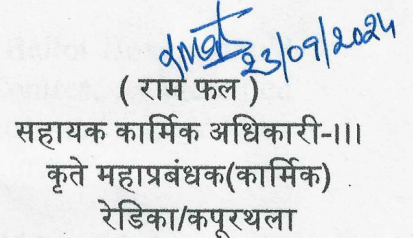 23/09/2024
( राम फल )
सहायक कार्मिक अधिकारी-III
कृते महाप्रबंधक(कार्मिक)
रेडिका/कपूरथला